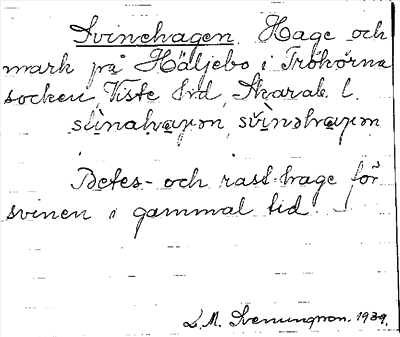 Svinehagen Hage och
mark på Häljebo i Trökörna
socken, Viste hrd, Skarab. l.
Betes- och rast-hage för
svinen i gammal tid. —
L. M. Svenungsson. 1939.